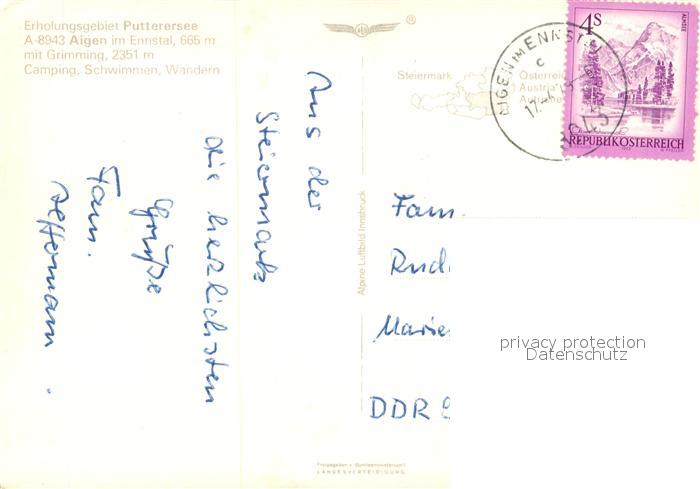 Erholungsgebiet Putterersee
A-8943 Aigen im Ennstal, 665 m
mit Grimming, 2351 m
Camping, Schwimmen, Wandern
®
Steiermark
Österrei
Austria
AIGEN IM ENNST
c
4S
REPUBLIK ÖSTERREICH
Aus der
Steiermark
die herzlichsten
Grüße
Fam.
Alpine Luftbild Innsbruck
Fam.
Rudi
Marie
DDR
privacy protection
Datenschutz
Freigegeben v. Bundesministerium f.
LANDESVERTEIDIGUNG